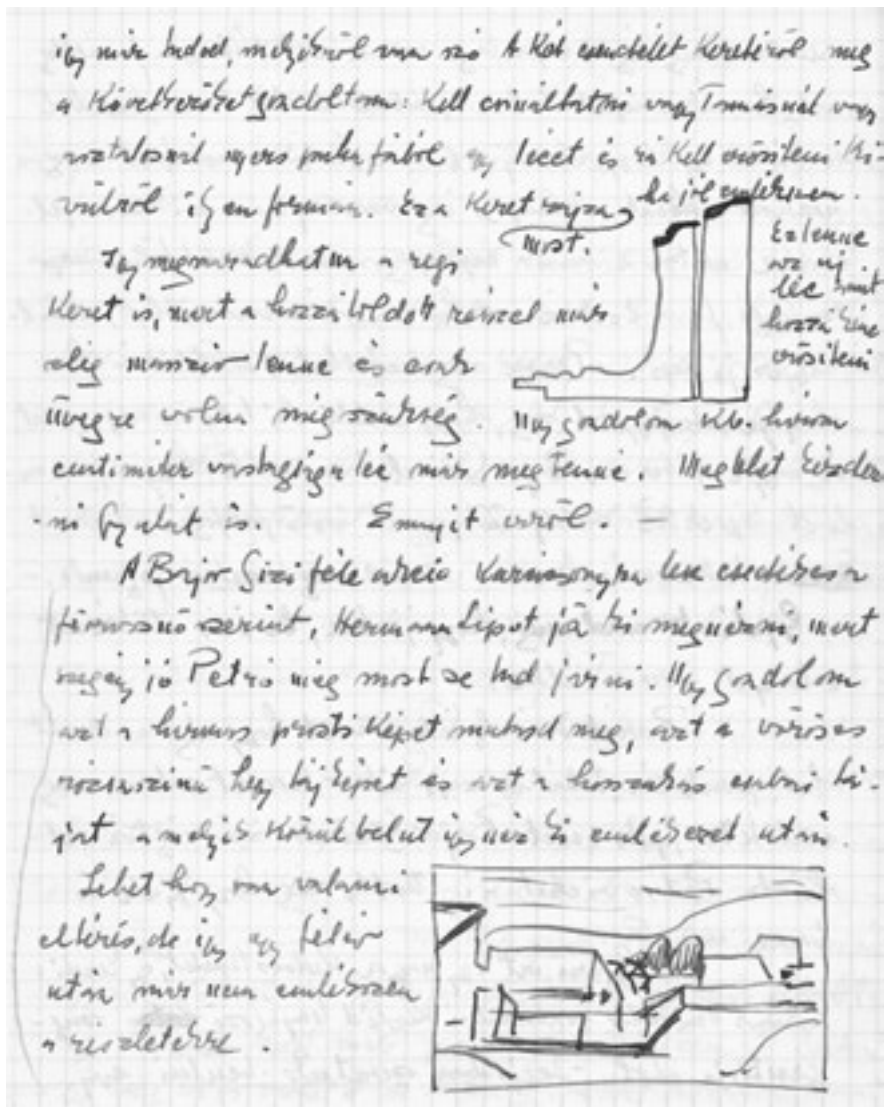 így már tudod, melyikről van szó A két csendélet keretéről meg
a következőket gondoltam: Kell csináltatni vagy Tamásnál vagy
asztalosnál nyers puha fából egy lécet és rá kell erősíteni kí-
vülről ilyen formán. Ez a keret rajza
most.
ha jól emlékszem.
Ez lenne
az új
léc amit
hozzá kéne
erősíteni
Így megmaradhatna a régi
keret is, mert a hozzá toldott résszel már
elég masszív lenne és csak
üvegre volna még szükség. Úgy gondolom kb. három
centiméter vastagságú léc már megtenné. Meg lehet kérdez
-ni Gyulát is. Ennyit erről. —
A Bajor Gizi féle akció karácsonyra lesz esedékes a
szerint, Herman Lipót jön ki megnézni, mert
szegény jó Petri még most se tud járni. Úgy gondolom
azt a hármas képet mutasd meg, azt a vöröses
rózsaszínű hegy tájképet és azt a hosszúkás tá-
jat amelyik körülbelül így néz ki emlékezet után.
Lehet hogy van valami
eltérés, de így egy fél év
után már nem emlékszem
a részletekre.